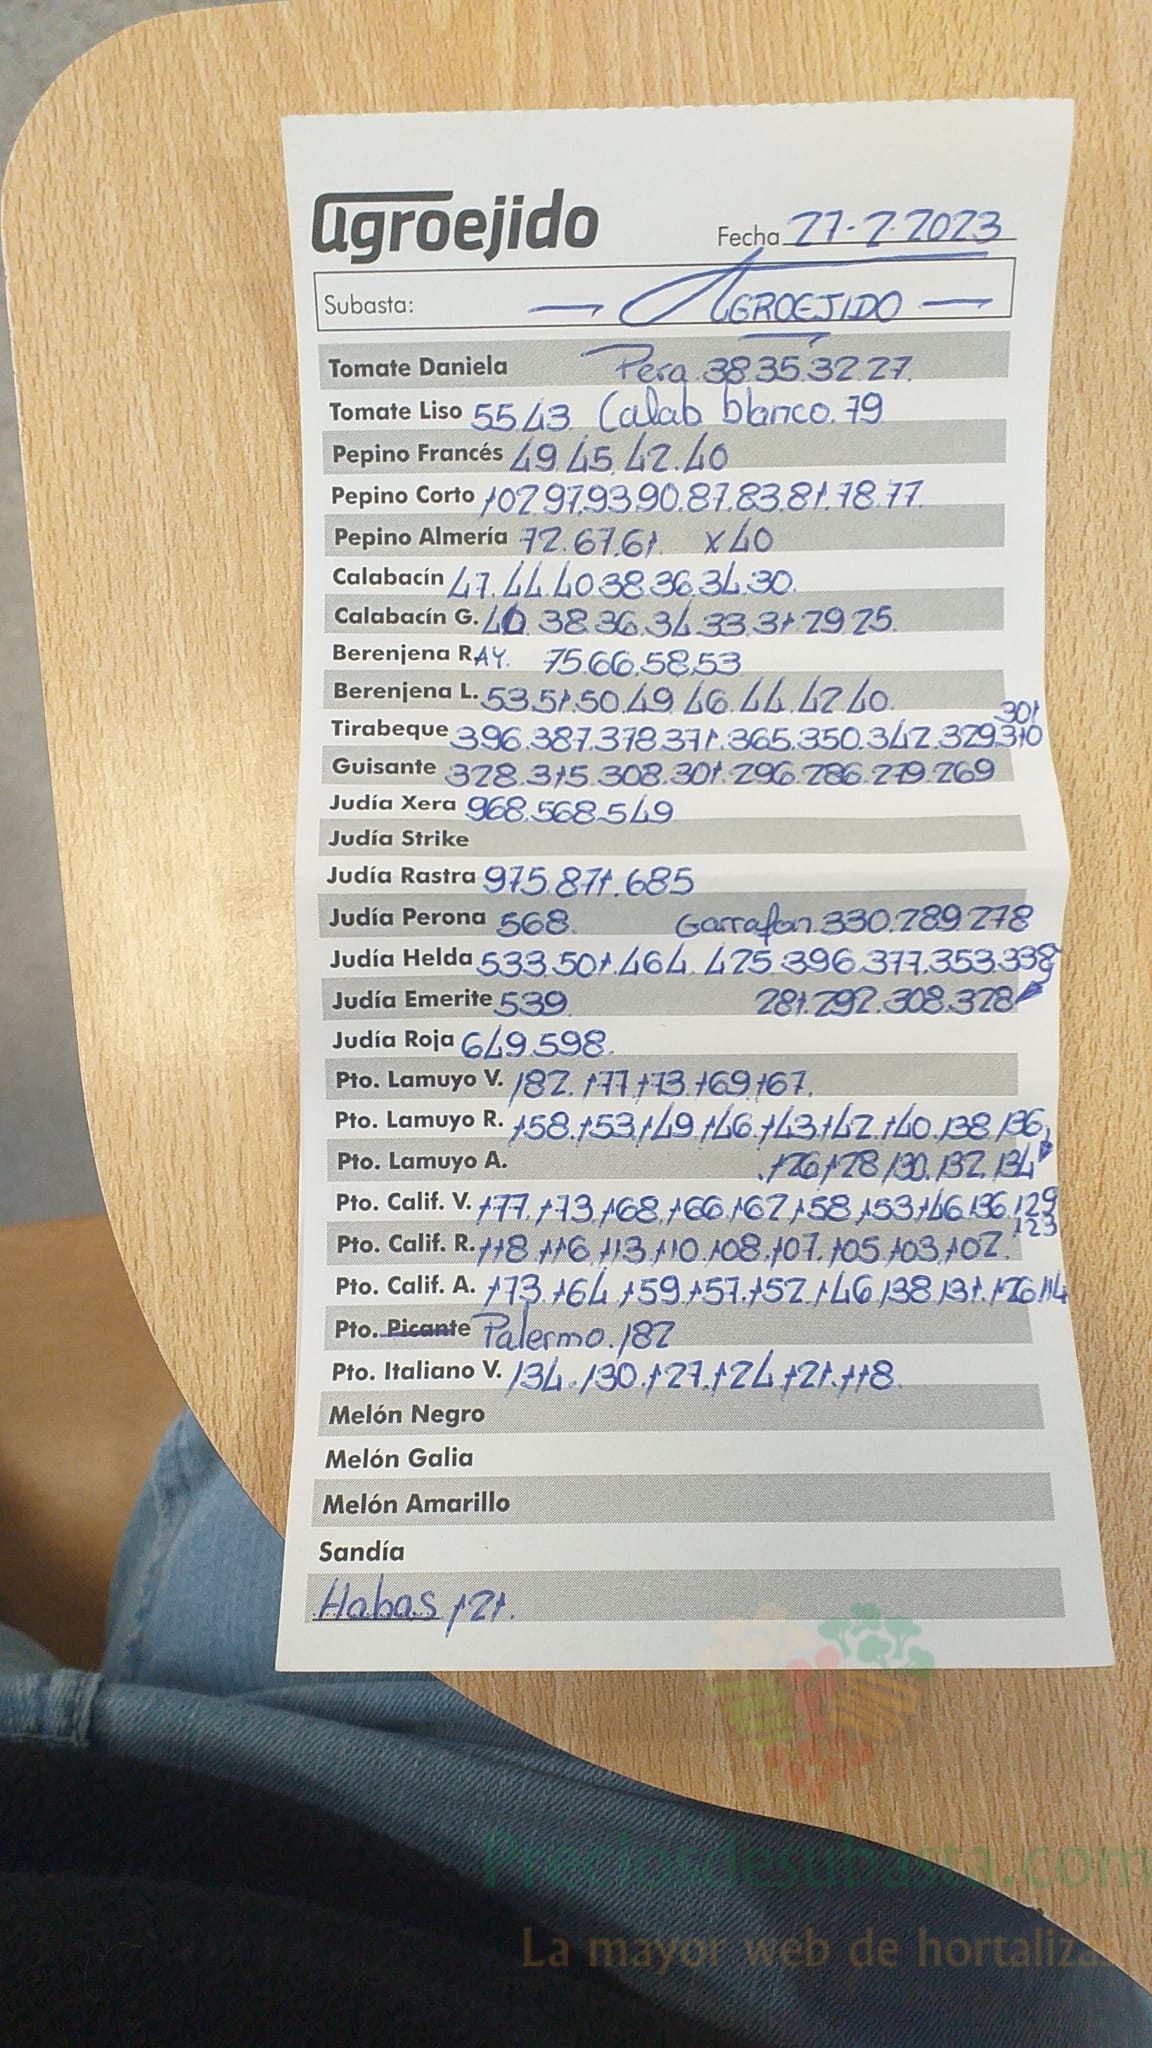 agroejido
Fecha 27-2-2023
Subasta: — AGROEJIDO —
Tomate Daniela Pera 38.35.32.27.
Tomate Liso 55.43 Calab blanco.79
Pepino Francés 49.45.42.40
Pepino Corto 102.97.93.90.87.83.81.78.77.
Pepino Almería 72.67.61. x40
Calabacín 47.44.40.38.36.34.30.
Calabacín G. 40 38.36.34.33.31.29.25.
Berenjena RAY. 75.66.58.53
Berenjena L. 53.51.50.49.46.44.42.40.
301
Tirabeque 396.387.378.371.365.350.342.329.310
Guisante 328.315.308.301.296.286.279.269
Judía Xera 968.568.549
Judía Strike
Judía Rastra 975.871.685
Judía Perona 568. Garrafon.330.289.278
Judía Helda 533.501.464.425.396.377.353.338
Judía Emerite 539 281.292.308.328
Judía Roja 649.598.
Pto. Lamuyo V. 182.177.173.169.167.
Pto. Lamuyo R. 158.153.149.146.143.142.140.138.136,
Pto. Lamuyo A. .126.128.130.132.134
Pto. Calif. V. 177.173.168.166.162.158.153.146.136.129
123
Pto. Calif. R. 118.116.113.110.108.107.105.103.102.
Pto. Calif. A. 173.164.159.157.152.146.138.131.126.114
Pto. Picante Palermo.182
Pto. Italiano V. 134.130.127.124.121.118.
Melón Negro
Melón Galia
Melón Amarillo
Sandía
Habas 121.
Preciosdesubasta.com
La mayor web de hortalizas